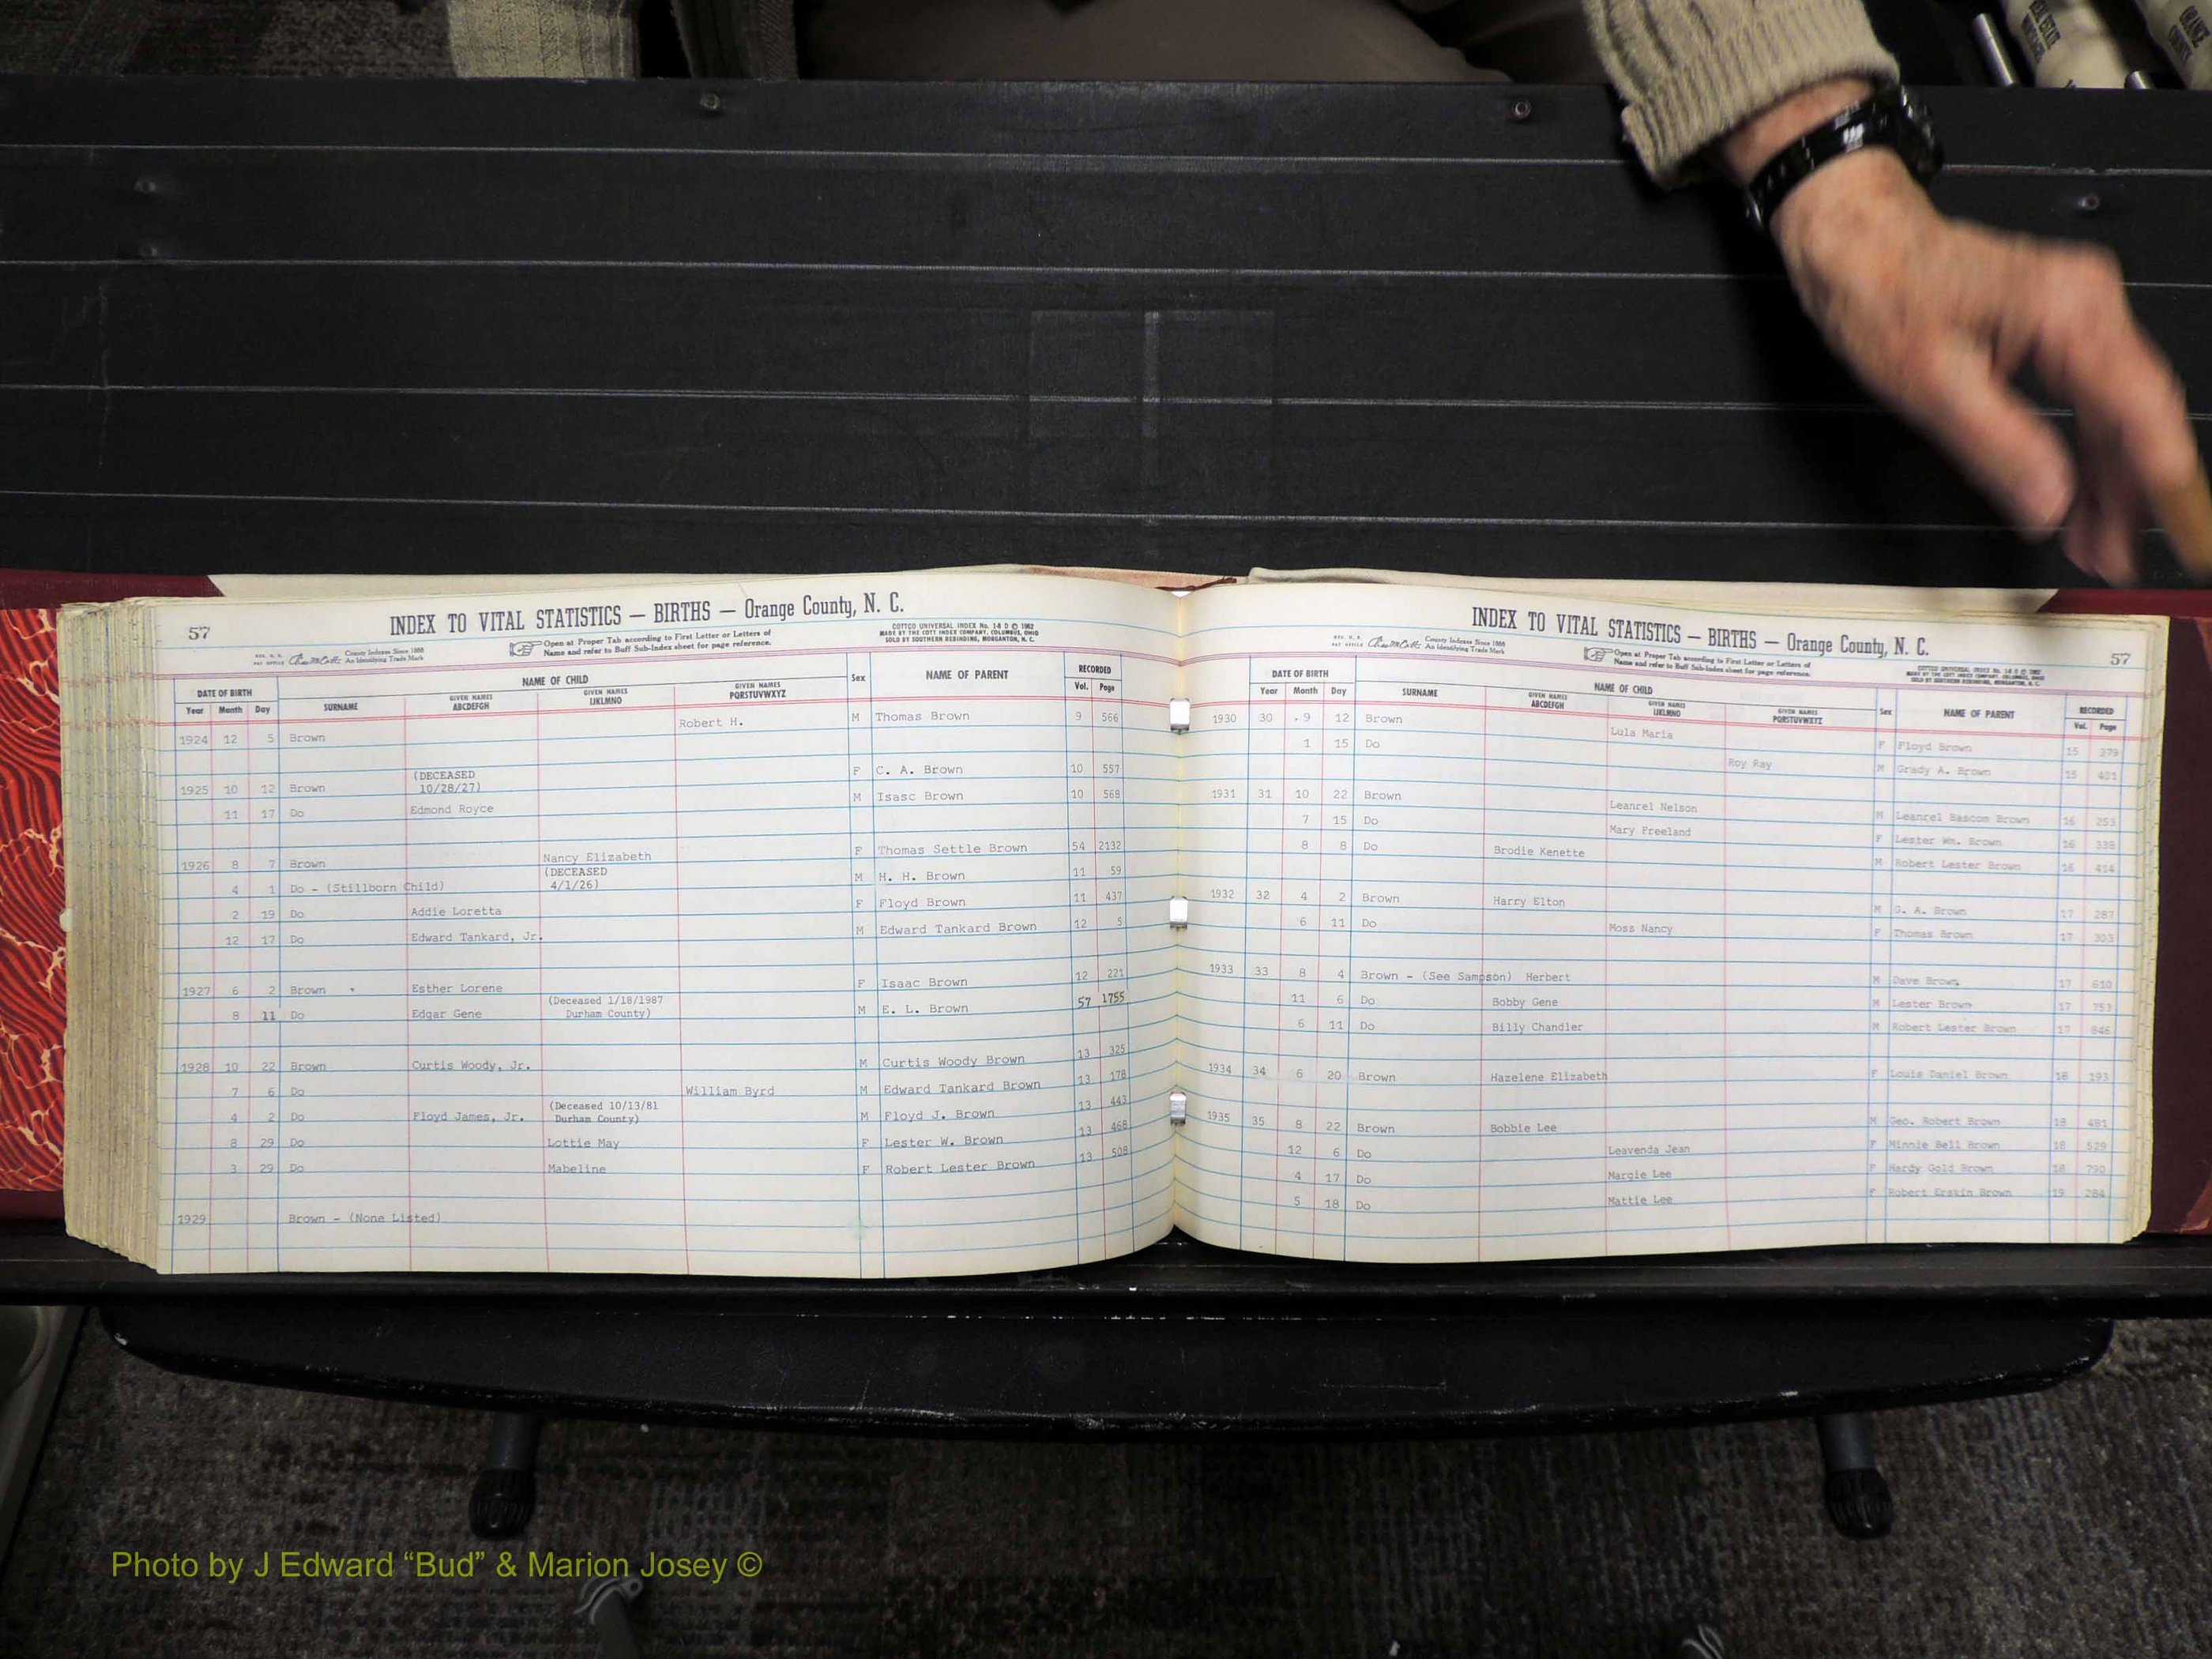 57
INDEX TO VITAL STATISTICS — BIRTHS — Orange County, N. C.
County Indexes Since 1888
An Identifying Trade Mark
Open at Proper Tab according to First Letter or Letters of
Name and refer to Buff Sub-Index sheet for page reference.
COTTCO UNIVERSAL INDEX No. 1-8 D © 1962
MADE BY THE COTT INDEX COMPANY, COLUMBUS, OHIO
SOLD BY SOUTHERN REBINDING, MORGANTON, N. C.
DATE OF BIRTH NAME OF CHILD Sex NAME OF PARENT RECORDED
Year Month Day SURNAME GIVEN NAMES ABCDEFGH GIVEN NAMES IJKLMNO GIVEN NAMES PQRSTUVWXYZ Vol. Page
1924 12 5 Brown Robert H. M Thomas Brown 9 566
1925 10 12 Brown (DECEASED 10/28/27) F C. A. Brown 10 557
11 17 Do Edmond Royce M Isasc Brown 10 568
1926 8 7 Brown Nancy Elizabeth F Thomas Settle Brown 54 2132
4 1 Do - (Stillborn Child) (DECEASED 4/1/26) M H. H. Brown 11 59
2 19 Do Addie Loretta F Floyd Brown 11 437
12 17 Do Edward Tankard, Jr. M Edward Tankard Brown 12 5
1927 6 2 Brown Esther Lorene F Isaac Brown 12 221
8 11 Do Edgar Gene (Deceased 1/18/1987 Durham County) M E. L. Brown 57 1755
1928 10 22 Brown Curtis Woody, Jr. M Curtis Woody Brown 13 325
7 6 Do William Byrd M Edward Tankard Brown 13 178
4 2 Do Floyd James, Jr. (Deceased 10/13/81 Durham County) M Floyd J. Brown 13 443
8 29 Do Lottie May F Lester W. Brown 13 468
3 29 Do Mabeline F Robert Lester Brown 13 508
1929 Brown - (None Listed)
INDEX TO VITAL STATISTICS — BIRTHS — Orange County, N. C.
57
County Indexes Since 1888
An Identifying Trade Mark
Open at Proper Tab according to First Letter or Letters of
Name and refer to Buff Sub-Index sheet for page reference.
DATE OF BIRTH NAME OF CHILD Sex NAME OF PARENT RECORDED
Year Month Day SURNAME GIVEN NAMES ABCDEFGH GIVEN NAMES IJKLMNO GIVEN NAMES PQRSTUVWXYZ Vol. Page
1930 30 9 12 Brown Lula Maria F Floyd Brown 15 379
1 15 Do Roy Ray M Grady A. Brown 15 401
1931 31 10 22 Brown Leanrel Nelson M Leanrel Bascom Brown 16 253
7 15 Do Mary Freeland F Lester Wm. Brown 16 338
8 8 Do Brodie Kenette M Robert Lester Brown 16 414
1932 32 4 2 Brown Harry Elton M G. A. Brown 17 287
6 11 Do Moss Nancy F Thomas Brown 17 303
1933 33 8 4 Brown - (See Sampson) Herbert M Dave Brown 17 610
11 6 Do Bobby Gene M Lester Brown 17 753
6 11 Do Billy Chandler M Robert Lester Brown 17 846
1934 34 6 20 Brown Hazelene Elizabeth F Louis Daniel Brown 18 193
1935 35 8 22 Brown Bobbie Lee M Geo. Robert Brown 18 481
12 6 Do Leavenda Jean F Minnie Bell Brown 18 529
4 17 Do Margie Lee F Hardy Gold Brown 18 790
5 18 Do Mattie Lee F Robert Erskin Brown 19 284
Photo by J Edward “Bud” & Marion Josey ©